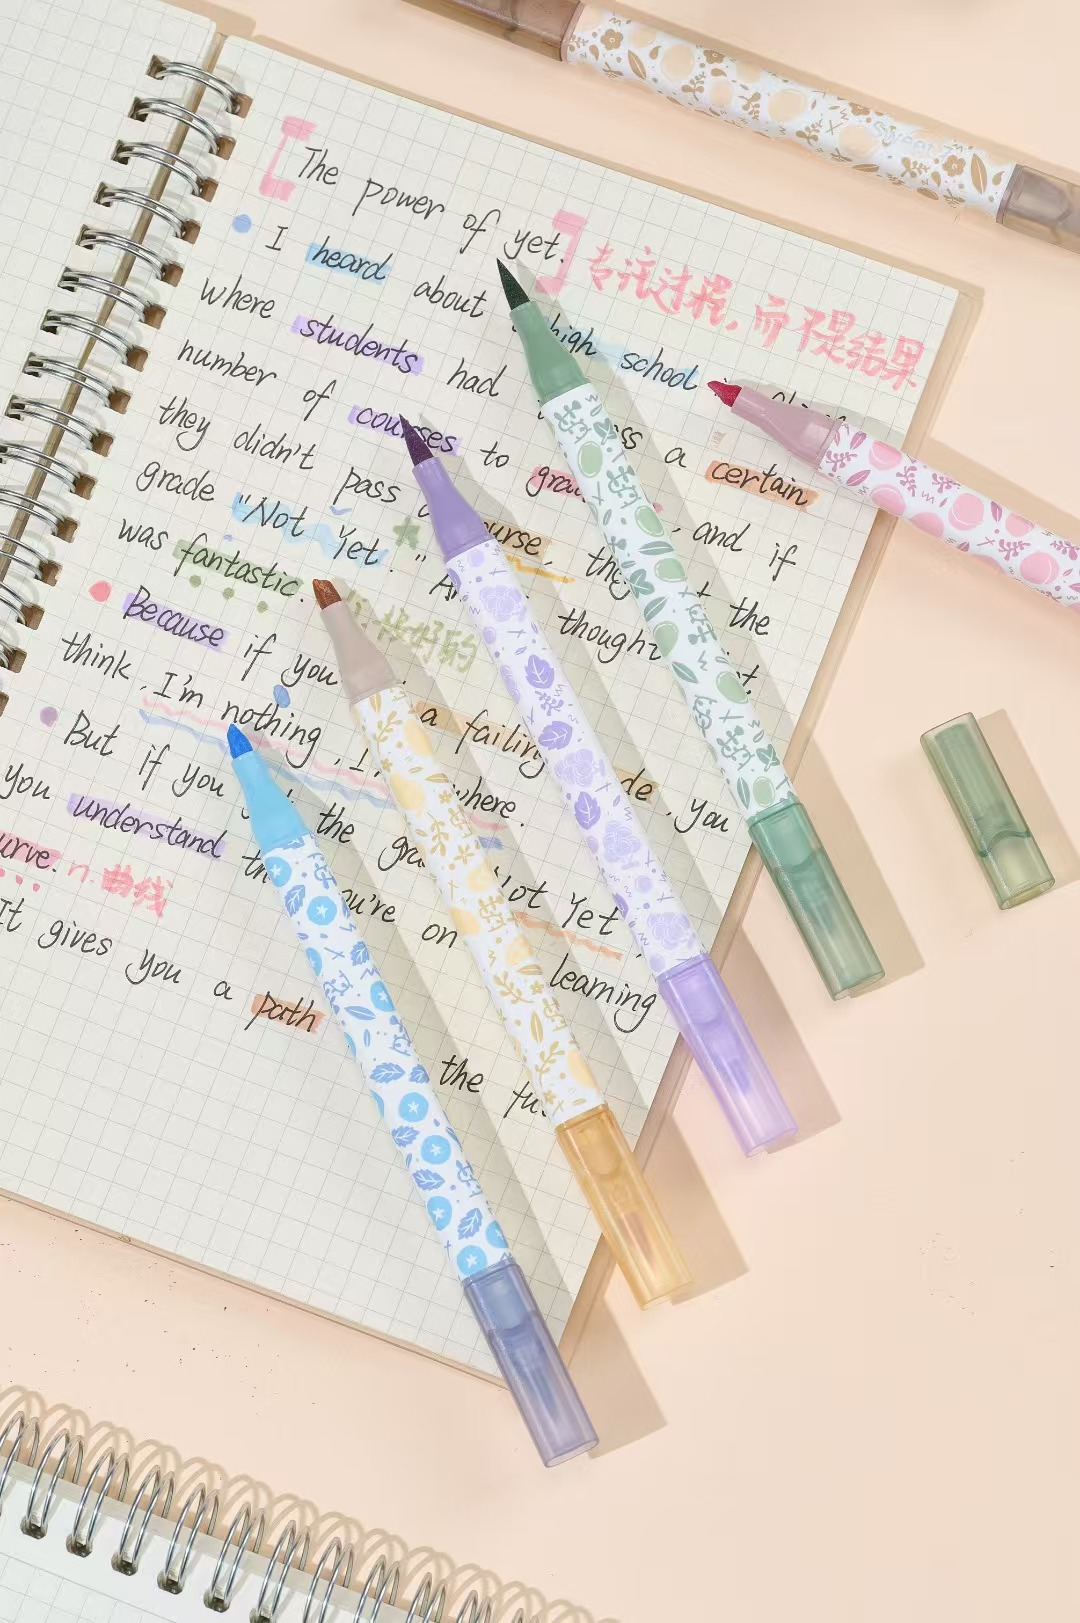 The power of yet. 专注过程,而不是结果
I heard about high school
where students had ss a certain
number of courses to , and if
they didn't pass urse, the
grade "Not Yet." the
was fantastic. 挺好的 thought
Because if you a failing de, you
think, I'm nothing, where.
But if you the Not Yet,
you understand you're on learning
urve. n.曲线
It gives you a path the